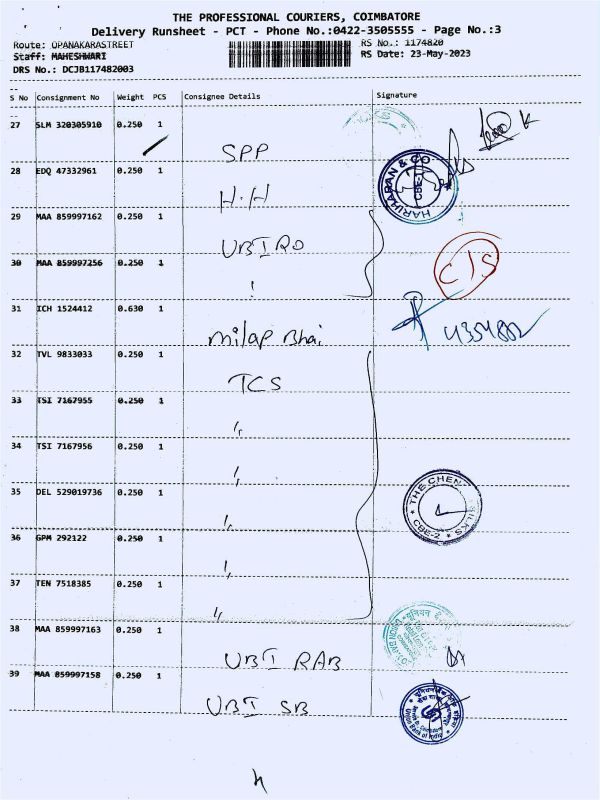 THE PROFESSIONAL COURIERS, COIMBATORE
Delivery Runsheet - PCT - Phone No.:0422-3505555 - Page No.:3
Route: OPANAKARASTREET
RS No.: 1174820
Staff: MAHESHWARI
RS Date: 23-May-2023
DRS No.: DCJB117482003
S No Consignment No Weight PCS Consignee Details Signature
27 SLM 320305910 0.250 1 SPP
28 EDQ 47332961 0.250 1 H.H
HARIHARAN & CO
CBE-1
29 MAA 859997162 0.250 1 UBI RO
30 MAA 859997256 0.250 1
CTS
31 ICH 1524412 0.630 1 milap Bhai
32 TVL 9833033 0.250 1 TCS
33 TSI 7167955 0.250 1 "
34 TSI 7167956 0.250 1 "
35 DEL 529019736 0.250 1 "
THE CHEN SILKS
CBE-2
36 GPM 292122 0.250 1 "
37 TEN 7518385 0.250 1 "
38 MAA 859997163 0.250 1 UBI RAB
39 MAA 859997158 0.250 1 UBI SB
Union Bank of India